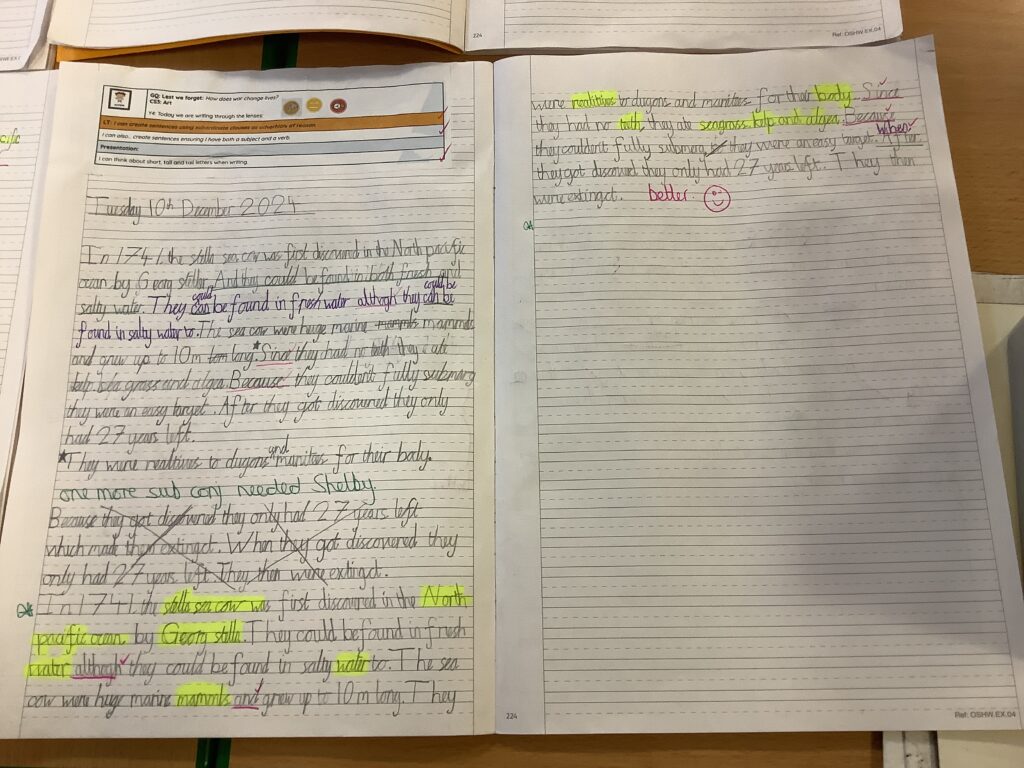 GQ: Lest we forget: How does war change lives?
CES: Art
Y4: Today we are writing through the lenses:
LT: I can create sentences using subordinate clauses as adverbials of reason.
I can also.. create sentences ensuring I have both a subject and a verb.
Presentation:
I can think about short, tall and tall letters when writing.
Tuesday 10th December 2024
In 1741, the stella sea cow was first discovered in the North pacific
ocan by Georg stella. And they could be found in both fresh and
salty water. They can could be found in fresh water althogh they can be could be
found in salty water to. The sea cow were huge marine mammals
and grew up to 10m long. *Since they had no teth they ate
kelp sea grass and algea. Because they couldn't fully submarg
they were an easy target. After they got discovered they only
had 27 years left.
*They wure realtives to dugons and manities for their body.
one more sub conj needed Shelby.
Because they got discovered they only had 27 years left
which made them extinct. When they got discovered they
only had 27 years left. They then were extinct.
In 1741, the stella sea cow was first discovered in the North
pacific ocan by Georg stella. They could be found in fresh
water although they could be found in salty water to. The sea
cow were huge marine mammals and grew up to 10m long. They
224
were realitives to dugons and manities for their body. Since
they had no teth, they ate seagrass kelp and algea. Because
they couldn't fully submarg they were an easy target. After When
they got discoverd they only had 27 years left. They then
were extinct. better
Ref: OSHW.EX.04
224
Ref: OSHW.EX.04